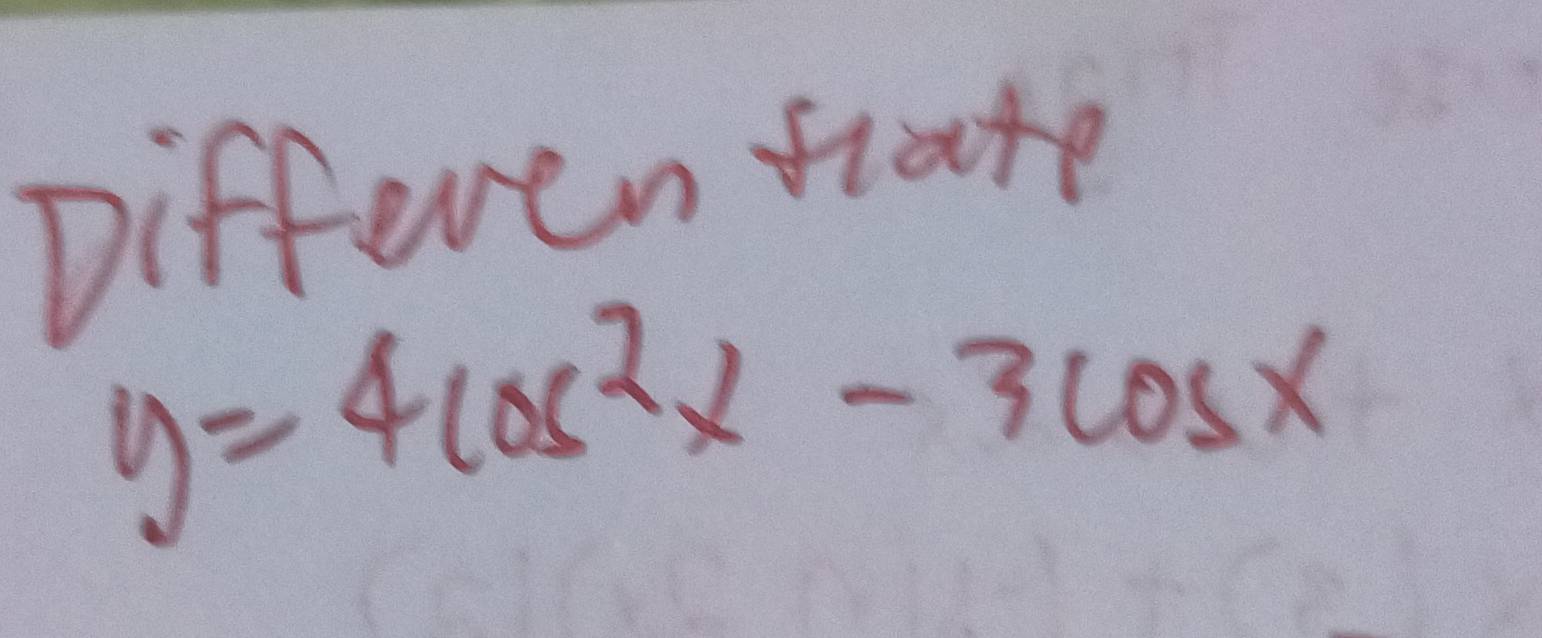 Differentiate
y = 4cos²x - 3cosx